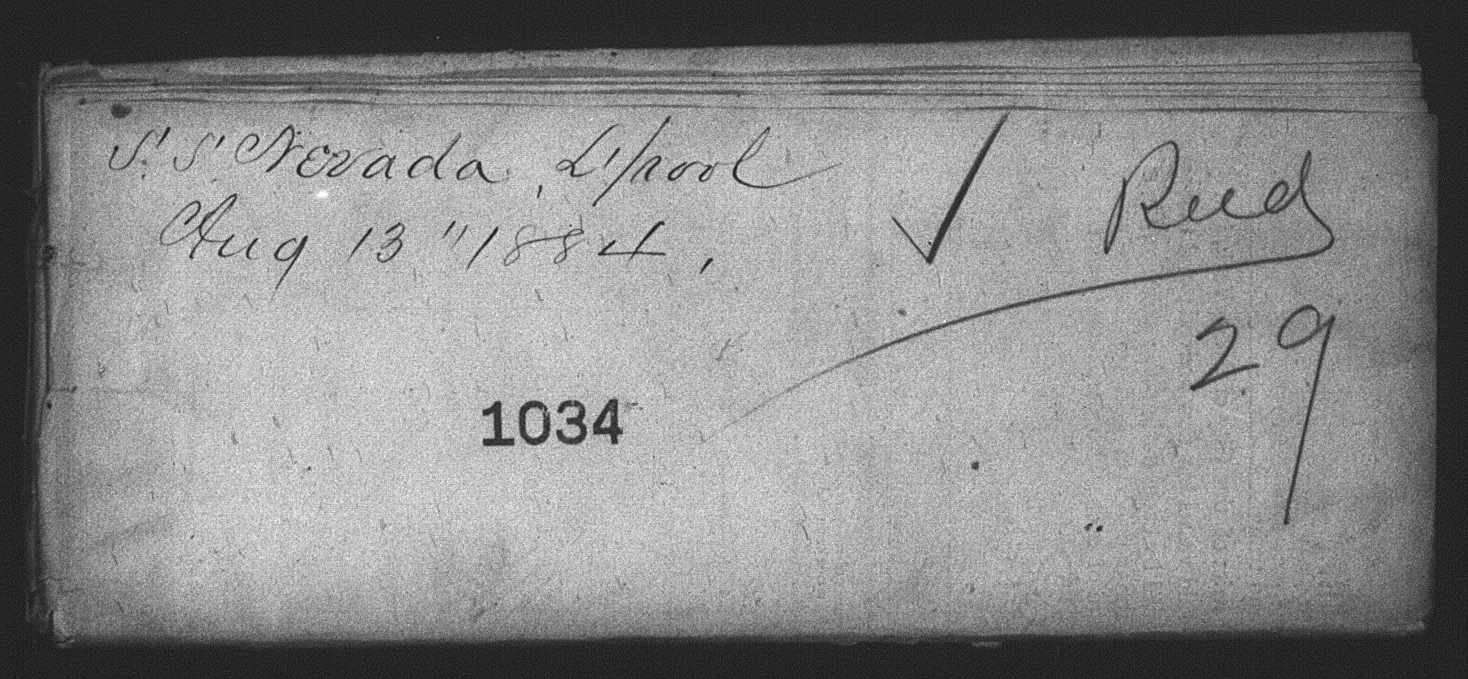 S. S. Nevada, L'pool ✓ Rued
Aug 13 " 1884,
29
1034